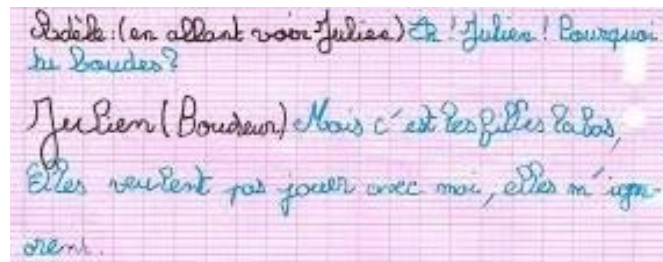 Adèle:(en allant voir Julien) Eh! Julien! Pourquoi
tu boudes?
Julien (Boudeur) Mais c'est les filles labas,
Elles veulent pas jouer avec moi, elles m'igno-
rent.